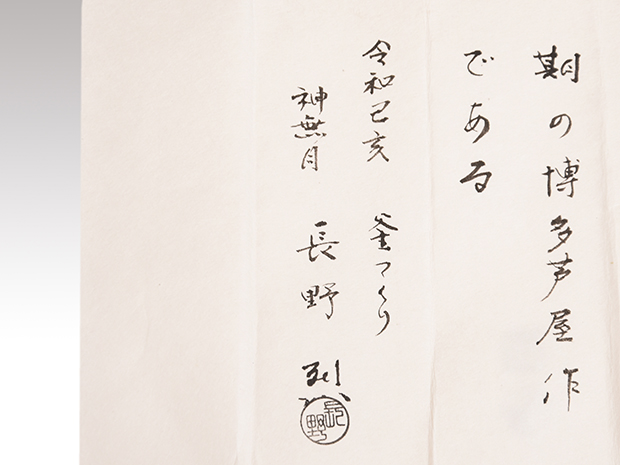 期の博多芦屋作
である
令和己亥 釜つくり
神無月 長野 烈
長野